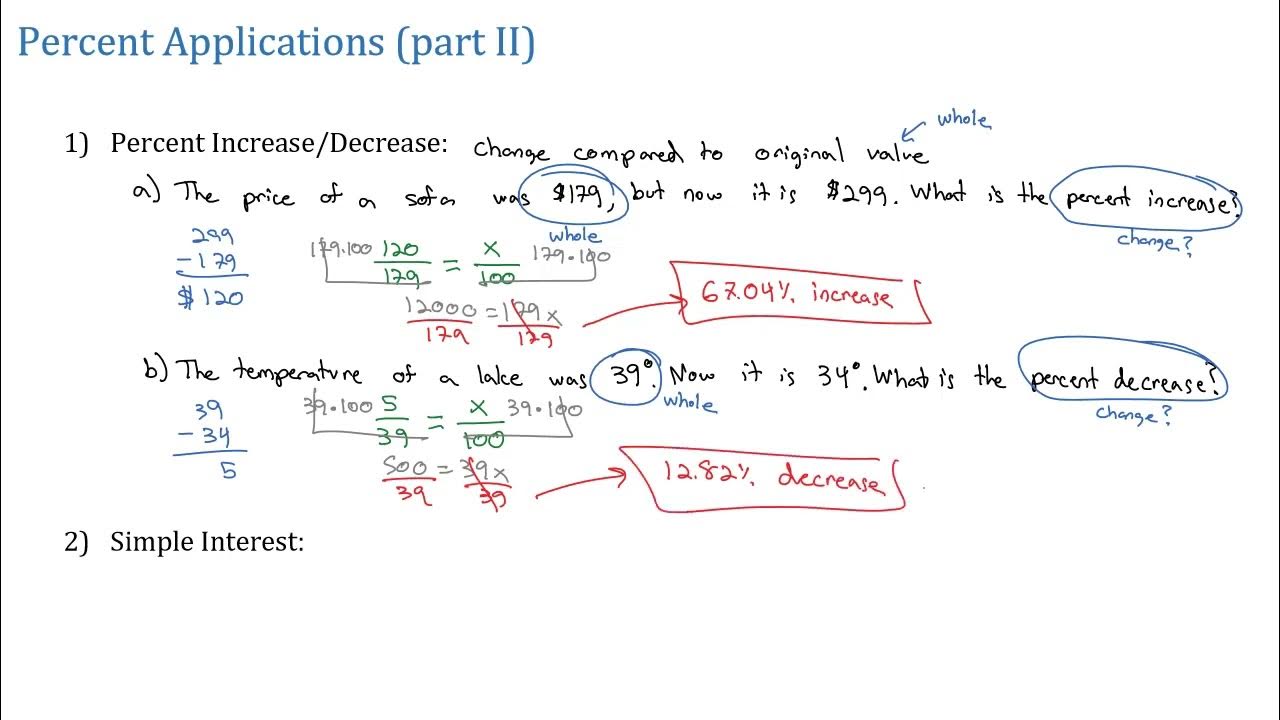 Percent Applications (part II)
whole
1) Percent Increase/Decrease: change compared to original value
a) The price of a sofa was $179, but now it is $299. What is the percent increase?
whole
change?
299
-179
$120
179.100 120/179 = x/100 179.100
12000/179 = 179x/179
67.04% increase
b) The temperature of a lake was 39°. Now it is 34°. What is the percent decrease?
whole
change?
39
-34
5
39.100 5/39 = x/100 39.100
500/39 = 39x/39
12.82% decrease
2) Simple Interest: